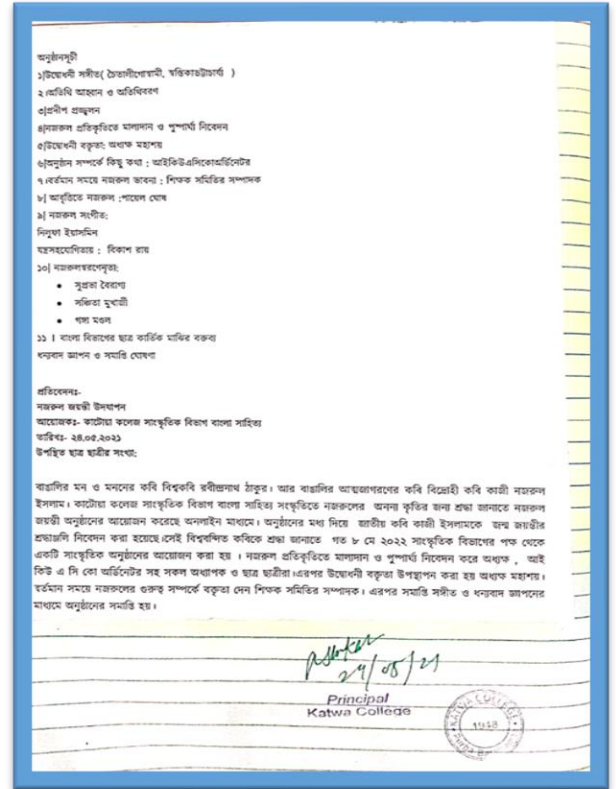 অনুষ্ঠানসূচী
১|উদ্বোধনী সঙ্গীত( চৈতালীগোস্বামী, স্বস্তিকাভট্টাচার্য্য )
২।অতিথি আহ্বান ও অতিথিবরণ
৩|প্রদীপ প্রজ্জ্বলন
৪|নজরুল প্রতিকৃতিতে মালাদান ও পুষ্পার্ঘ্য নিবেদন
৫|উদ্বোধনী বক্তৃতা: অধ্যক্ষ মহাশয়
৬|অনুষ্ঠান সম্পর্কে কিছু কথা : আইকিউএসিকোঅর্ডিনেটর
৭।বর্তমান সময়ে নজরুল ভাবনা : শিক্ষক সমিতির সম্পাদক
৮| আবৃত্তিতে নজরুল :পায়েল ঘোষ
৯| নজরুল সংগীত:
নিলুফা ইয়াসমিন
যন্ত্রসহযোগিতায় : বিকাশ রায়
১০| নজরুলস্মরণেনৃত্য:
• সুপ্রভা বৈরাগ্য
• সঞ্চিতা মুখার্জী
• গঙ্গা মণ্ডল
১১ । বাংলা বিভাগের ছাত্র কার্তিক মাঝির বক্তব্য
ধন্যবাদ জ্ঞাপন ও সমাপ্তি ঘোষণা
প্রতিবেদনঃ-
নজরুল জয়ন্তী উদযাপন
আয়োজকঃ- কাটোয়া কলেজ সাংস্কৃতিক বিভাগ বাংলা সাহিত্য
তারিখঃ- ২৪.০৫.২০২১
উপস্থিত ছাত্র ছাত্রীর সংখ্যা:
বাঙালির মন ও মননের কবি বিশ্বকবি রবীন্দ্রনাথ ঠাকুর। আর বাঙালির আত্মজাগরণের কবি বিদ্রোহী কবি কাজী নজরুল
ইসলাম। কাটোয়া কলেজ সাংস্কৃতিক বিভাগ বাংলা সাহিত্য সংস্কৃতিতে নজরুলের অনন্য কৃতির জন্য শ্রদ্ধা জানাতে নজরুল
জয়ন্তী অনুষ্ঠানের আয়োজন করেছে অনলাইন মাধ্যমে। অনুষ্ঠানের মধ্য দিয়ে জাতীয় কবি কাজী ইসলামকে জন্ম জয়ন্তীর
শ্রদ্ধাঞ্জলি নিবেদন করা হয়েছে।সেই বিশ্ববন্দিত কবিকে শ্রদ্ধা জানাতে গত ৮ মে ২০২২ সাংস্কৃতিক বিভাগের পক্ষ থেকে
একটি সাংস্কৃতিক অনুষ্ঠানের আয়োজন করা হয় । নজরুল প্রতিকৃতিতে মালাদান ও পুষ্পার্ঘ্য নিবেদন করে অধ্যক্ষ , আই
কিউ এ সি কো অর্ডিনেটর সহ সকল অধ্যাপক ও ছাত্র ছাত্রীরা।এরপর উদ্বোধনী বক্তৃতা উপস্থাপন করা হয় অধ্যক্ষ মহাশয়।
বর্তমান সময়ে নজরুলের গুরুত্ব সম্পর্কে বক্তৃতা দেন শিক্ষক সমিতির সম্পাদক। এরপর সমাপ্তি সঙ্গীত ও ধন্যবাদ জ্ঞাপনের
মাধ্যমে অনুষ্ঠানের সমাপ্তি হয়।
24/05/21
Principal
Katwa College
KATWA COLLEGE
1948